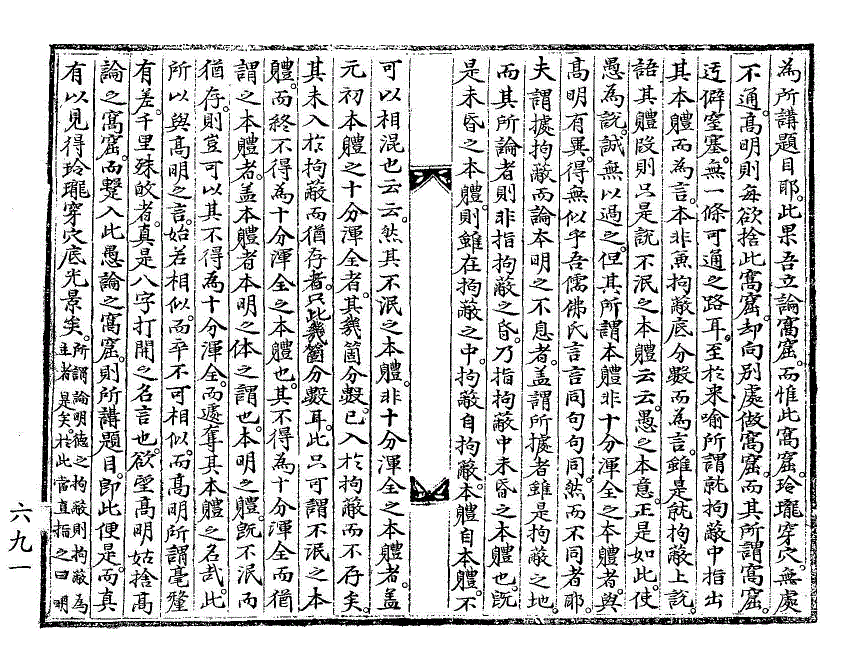 為所講題目耶。此果吾立論窩窟。而惟此窩窟。玲瓏穿穴。無處
不通。高明則每欲捨此窩窟。却向別處做窩窟。而其所謂窩窟。
迃僻窒塞。無一條可通之路耳。至於來喻所謂就拘蔽中指出
其本體而為言。本非兼拘蔽底分數而為言。雖是就拘蔽上說。
語其體段則只是說不泯之本體云云。愚之本意。正是如此。使
愚為說。誠無以過之。但其所謂本體非十分渾全之本體者。與
高明有異。得無似乎吾儒佛氏言言同句句同。然而不同者耶。
夫謂據拘蔽而論本明之不息者。盖謂所據者雖是拘蔽之地。
而其所論者則非指拘蔽之昏。乃指拘蔽中未昏之本體也。旣
是未昏之本體。則雖在拘蔽之中。拘蔽自拘蔽。本體自本體。不
可以相混也云云。然其不泯之本體。非十分渾全之本體者。盖
元初本體之十分渾全者。其幾箇分數。已入於拘蔽而不存矣。
其未入於拘蔽而猶存者。只此幾箇分數耳。此只可謂不泯之本
體。而終不得為十分渾全之本體也。其不得為十分渾全而猶
謂之本體者。盖本體者本明之体之謂也。本明之體。旣不泯而
猶存。則豈可以其不得為十分渾全。而遽奪其本體之名哉。此
所以與高明之言。始若相似。而卒不可相似。而高明所謂毫釐
有差。千里殊的者。真是八字打開之名言也。欲望高明姑捨高
論之窩窟。而蹔入此愚論之窩窟。則所講題目。即此便是。而真
有以見得玲瓏穿穴底光景矣。所謂論明德之拘蔽則拘蔽為
主者是矣。於此當直指之曰明
六九一